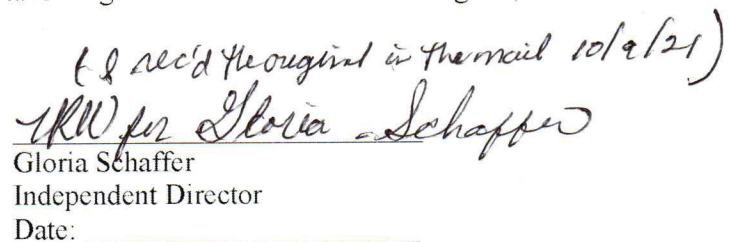 (I rec'd the original in the mail 10/9/21)
for Gloria Schaffer
Gloria Schaffer
Independent Director
Date: